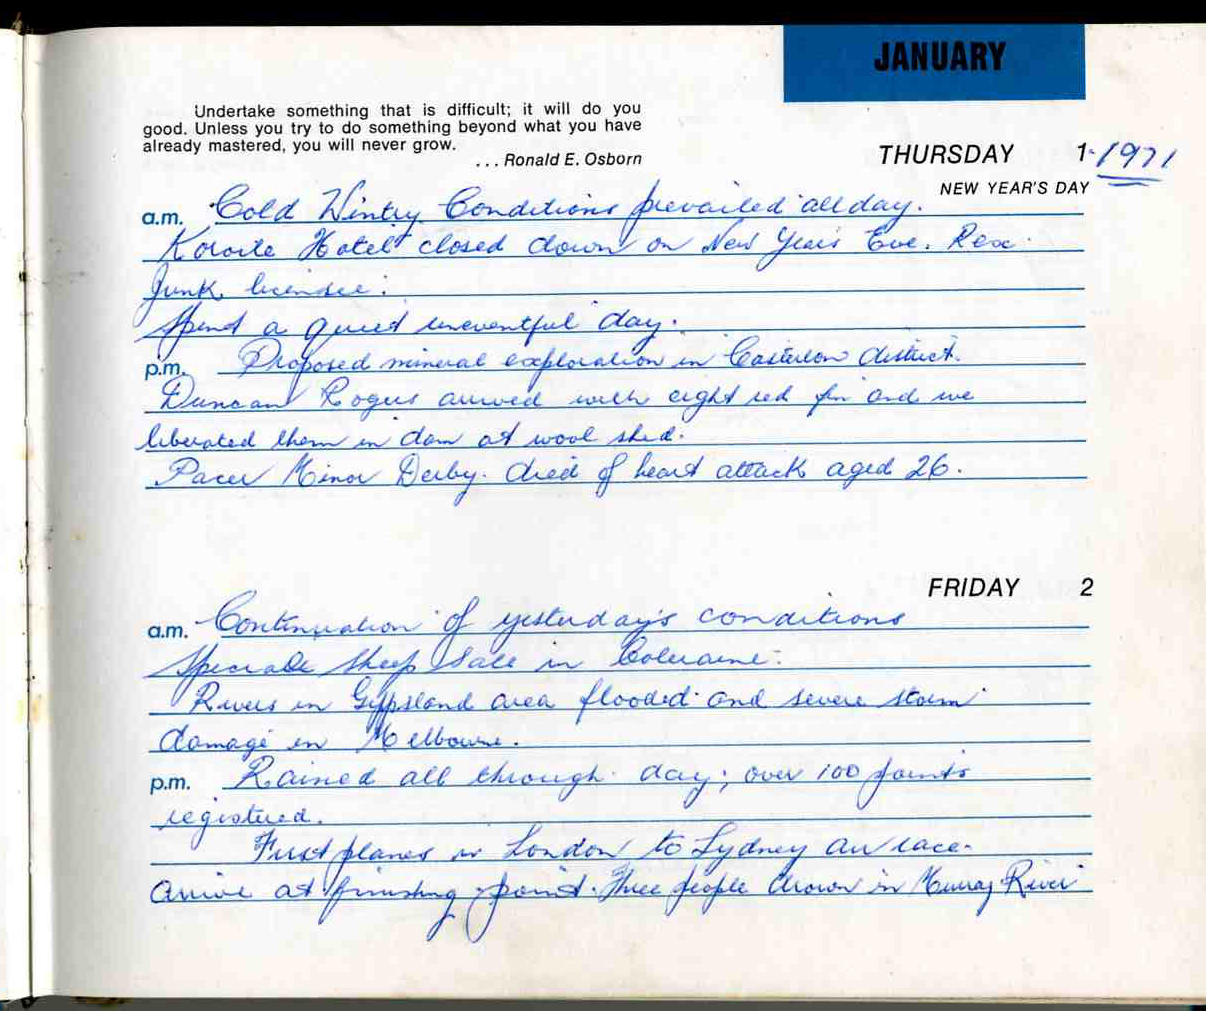 JANUARY
Undertake something that is difficult; it will do you
good. Unless you try to do something beyond what you have
already mastered, you will never grow.
... Ronald E. Osborn
THURSDAY 1 - 1971
NEW YEAR'S DAY
a.m. Cold Wintry Conditions prevailed all day.
Koroite Hotel closed down on New Years Eve. Rex
Junk, licensee.
Spent a quiet uneventful day.
p.m. Proposed mineral exploration in Casterton district.
Duncan Rogers arrived with eight red fin and we
liberated them in dam at wool shed.
Pacer Minor Derby. died of heart attack aged 26.
FRIDAY 2
a.m. Continuation of yesterday's conditions
Speciale Sheep Sale in Coleraine.
Rivers in Gippsland area flooded and severe storm
damage in Melbourne.
p.m. Rained all through day; over 100 points
registered.
First planes in London to Sydney air race
arrive at finishing point. Three people drown in Murray River